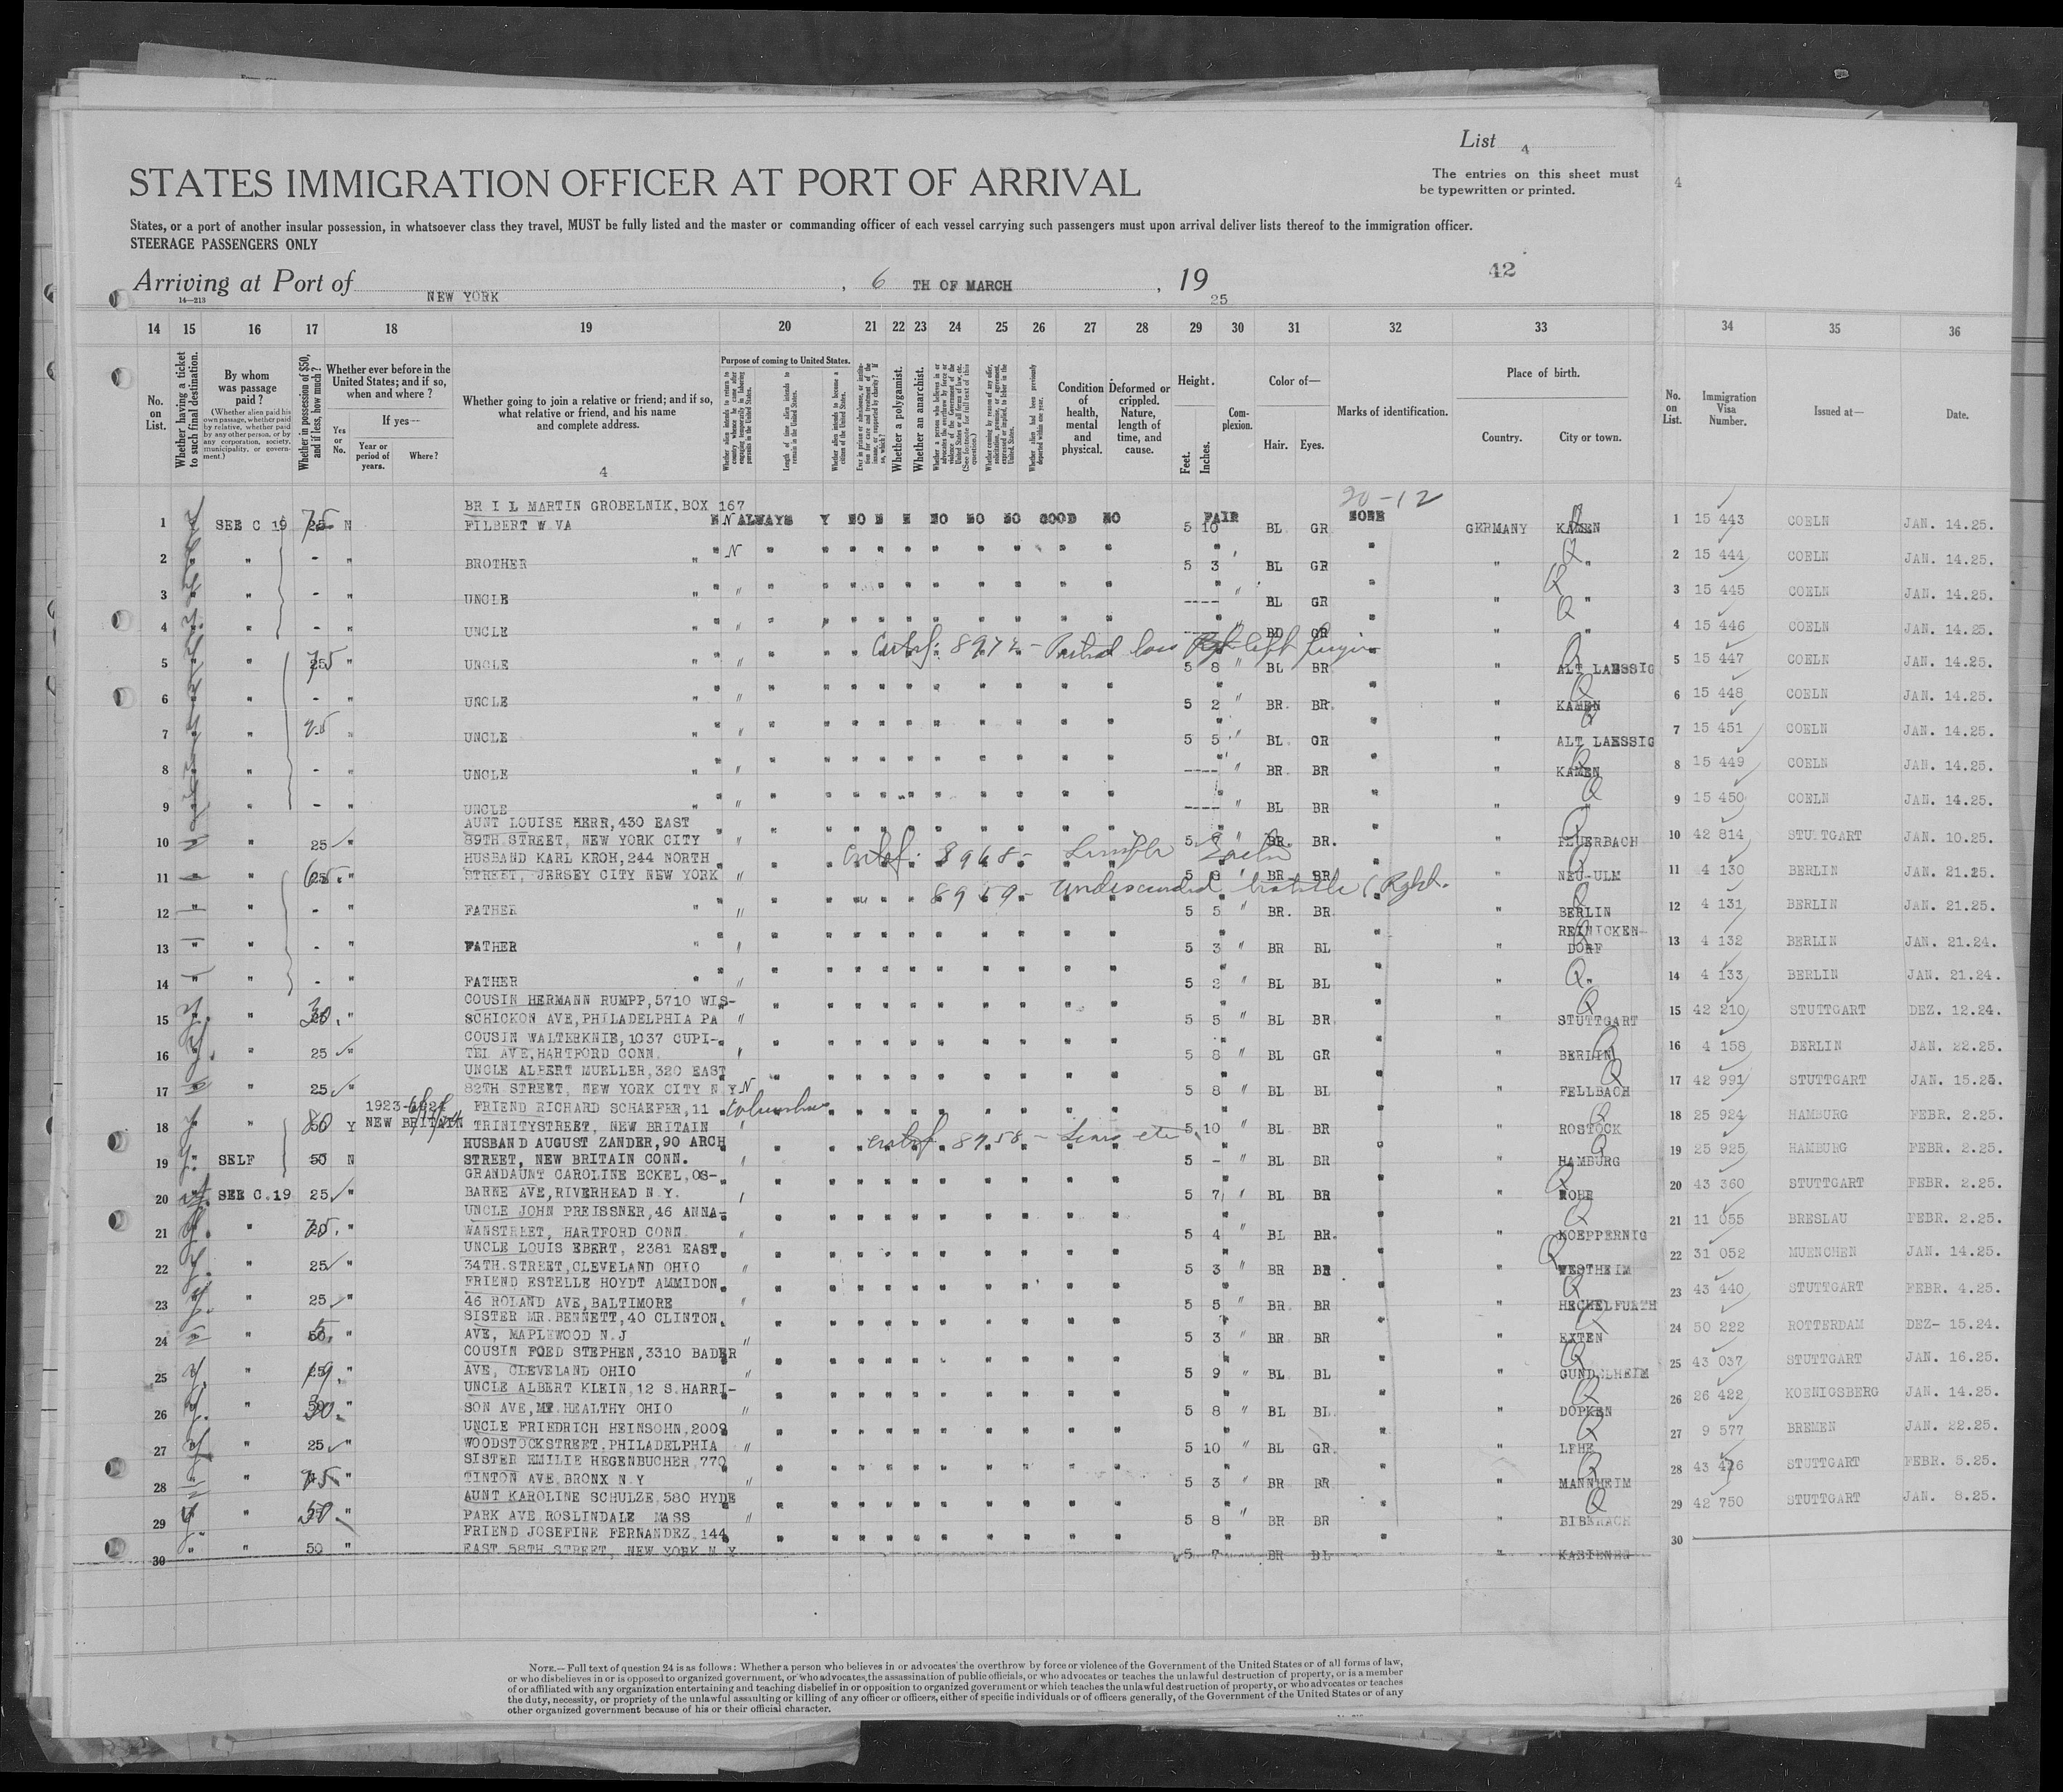 List 4
STATES IMMIGRATION OFFICER AT PORT OF ARRIVAL
The entries on this sheet must be typewritten or printed.
4
States, or a port of another insular possession, in whatsoever class they travel, MUST be fully listed and the master or commanding officer of each vessel carrying such passengers must upon arrival deliver lists thereof to the immigration officer.
STEERAGE PASSENGERS ONLY
Arriving at Port of NEW YORK, 6 TH OF MARCH, 19 25
42
14—213
14 15 16 17 18 19 20 21 22 23 24 25 26 27 28 29 30 31 32 33 34 35 36
No. on List.
Whether having a ticket to such final destination.
By whom was passage paid?
(Whether alien paid his own passage, whether paid by relative, whether paid by any other person, or by any corporation, society, municipality, or government.)
Whether in possession of $50, and if less, how much?
Whether ever before in the United States; and if so, when and where?
Yes or No.
If yes—
Year or period of years.
Where?
Whether going to join a relative or friend; and if so, what relative or friend, and his name and complete address.
4
Purpose of coming to United States.
Whether alien intends to return to country whence he came after engaging temporarily in laboring pursuits in the United States.
Length of time alien intends to remain in the United States.
Whether alien intends to become a citizen of the United States.
Whether a polygamist.
Whether an anarchist.
Condition of health, mental and physical.
Deformed or crippled. Nature, length of time, and cause.
Height.
Feet. Inches.
Complexion.
Color of—
Hair. Eyes.
Marks of identification.
Place of birth.
Country. City or town.
No. on List.
Immigration Visa Number.
Issued at—
Date.
20-12
BR I L MARTIN GROBELNIK, BOX 167
1 SEE C 19 25 75 N FILBERT W VA N N ALWAYS Y NO N N NO NO NO GOOD NO 5 10 FAIR BL GR NONE GERMANY KAMEN 1 15 443 COELN JAN. 14.25.
2 " - " BROTHER " N 5 3 BL GR " " 2 15 444 COELN JAN. 14.25.
3 " - " UNCLE " ---- BL GR " " 3 15 445 COELN JAN. 14.25.
4 " - " UNCLE " BL GR " " 4 15 446 COELN JAN. 14.25.
Certf. 8972 - Partial loss left finger
5 " 25 75 " UNCLE " 5 8 BL BR " ALT LAESSIG 5 15 447 COELN JAN. 14.25.
6 " - " UNCLE " 5 2 BR. BR. " KAMEN 6 15 448 COELN JAN. 14.25.
7 " " UNCLE " 5 5 BL GR " ALT LAESSIG 7 15 451 COELN JAN. 14.25.
8 " - " UNCLE " ---- BR. BR " KAMEN 8 15 449 COELN JAN. 14.25.
9 " - " UNCLE " ---- BL BR " " 9 15 450 COELN JAN. 14.25.
AUNT LOUISE HERR, 430 EAST
10 " 25 " 89TH STREET, NEW YORK CITY 5 BR. BR. " FEUERBACH 10 42 814 STUTTGART JAN. 10.25.
HUSBAND KARL KROH, 244 NORTH
Certf. 8968 -
11 " 25 65 " STREET, JERSEY CITY NEW YORK 5 8 BR BR " NEU-ULM 11 4 130 BERLIN JAN. 21.25.
8959 - Undescended testicle (Right.
12 " - " FATHER " 5 5 BR. BR " BERLIN 12 4 131 BERLIN JAN. 21.25.
13 " - " FATHER " 5 3 BR BL " REINICKEN-DORF 13 4 132 BERLIN JAN. 21.24.
14 " - " FATHER " 5 2 BL BL " " 14 4 133 BERLIN JAN. 21.24.
COUSIN HERMANN RUMPP, 5710 WIS-
15 " 30 " SCHICKON AVE, PHILADELPHIA PA 5 5 BL BR " STUTTGART 15 42 210 STUTTGART DEZ. 12.24.
COUSIN WALTERKNIE, 1037 CUPI-
16 " 25 " TEL AVE, HARTFORD CONN. 5 8 BL GR " BERLIN 16 4 158 BERLIN JAN. 22.25.
UNCLE ALBERT MUELLER, 320 EAST
17 " 25 " 82TH STREET, NEW YORK CITY N Y N 5 8 BL BL " FELLBACH 17 42 991 STUTTGART JAN. 15.25.
1923-1924 FRIEND RICHARD SCHAEFER, 11 Columbus
18 " 80 Y NEW BRITAIN TRINITYSTREET, NEW BRITAIN 5 10 BL BR " ROSTOCK 18 25 924 HAMBURG FEBR. 2.25.
HUSBAND AUGUST ZANDER, 90 ARCH
Certf 8958 - Scars etc
19 SELF 50 N STREET, NEW BRITAIN CONN. 5 - BL BR " HAMBURG 19 25 925 HAMBURG FEBR. 2.25.
GRANDAUNT CAROLINE ECKEL, OS-
20 SEE C.19 25 " BARNE AVE, RIVERHEAD N.Y. 5 7 BL BR " ROHR 20 43 360 STUTTGART FEBR. 2.25.
UNCLE JOHN PREISSNER, 46 ANNA-
21 " " WANSTREET, HARTFORD CONN. 5 4 BL BR. " KOEPPERNIG 21 11 055 BRESLAU FEBR. 2.25.
UNCLE LOUIS EBERT, 2381 EAST
22 " 25 " 34TH STREET, CLEVELAND OHIO 5 3 BR BR " WESTHEIM 22 31 052 MUENCHEN JAN. 14.25.
FRIEND ESTELLE HOYDT AMMIDON,
23 " 25 " 46 ROLAND AVE, BALTIMORE 5 5 BR. BR " HECHELFURTH 23 43 440 STUTTGART FEBR. 4.25.
SISTER MR. BENNETT, 40 CLINTON,
24 " 50 " AVE, MAPLEWOOD N.J 5 3 BR BR " EXTEN 24 50 222 ROTTERDAM DEZ- 15.24.
COUSIN FOED STEPHEN, 3310 BADER
25 " " AVE, CLEVELAND OHIO 5 9 BL BL " GUNDELSHEIM 25 43 037 STUTTGART JAN. 16.25.
UNCLE ALBERT KLEIN, 12 S.HARRI-
26 " " SON AVE, MT. HEALTHY OHIO 5 8 BL BL " DOPKEN 26 26 422 KOENIGSBERG JAN. 14.25.
UNCLE FRIEDRICH HEINSOHN, 2009
27 " 25 " WOODSTOCKSTREET, PHILADELPHIA 5 10 BL GR. " LEHE 27 9 577 BREMEN JAN. 22.25.
SISTER EMILIE HEGENBUCHER 770
28 " " TINTON AVE, BRONX N.Y 5 3 BR BR " MANNHEIM 28 43 426 STUTTGART FEBR. 5.25.
AUNT KAROLINE SCHULZE, 580 HYDE
29 " 50 " PARK AVE ROSLINDALE MASS 5 8 BR BR " BIBERACH 29 42 750 STUTTGART JAN. 8.25.
FRIEND JOSEFINE FERNANDEZ 144
30 " 50 " EAST 58TH STREET, NEW YORK N Y 5 7 BR BL " 30
NOTE.—Full text of question 24 is as follows: Whether a person who believes in or advocates the overthrow by force or violence of the Government of the United States or of all forms of law,
or who disbelieves in or is opposed to organized government, or who advocates the assassination of public officials, or who advocates or teaches the unlawful destruction of property, or is a member
of or affiliated with any organization entertaining and teaching disbelief in or opposition to organized government or which teaches the unlawful destruction of property, or who advocates or teaches
the duty, necessity, or propriety of the unlawful assaulting or killing of any officer or officers, either of specific individuals or of officers generally, of the Government of the United States or of any
other organized government because of his or their official character.